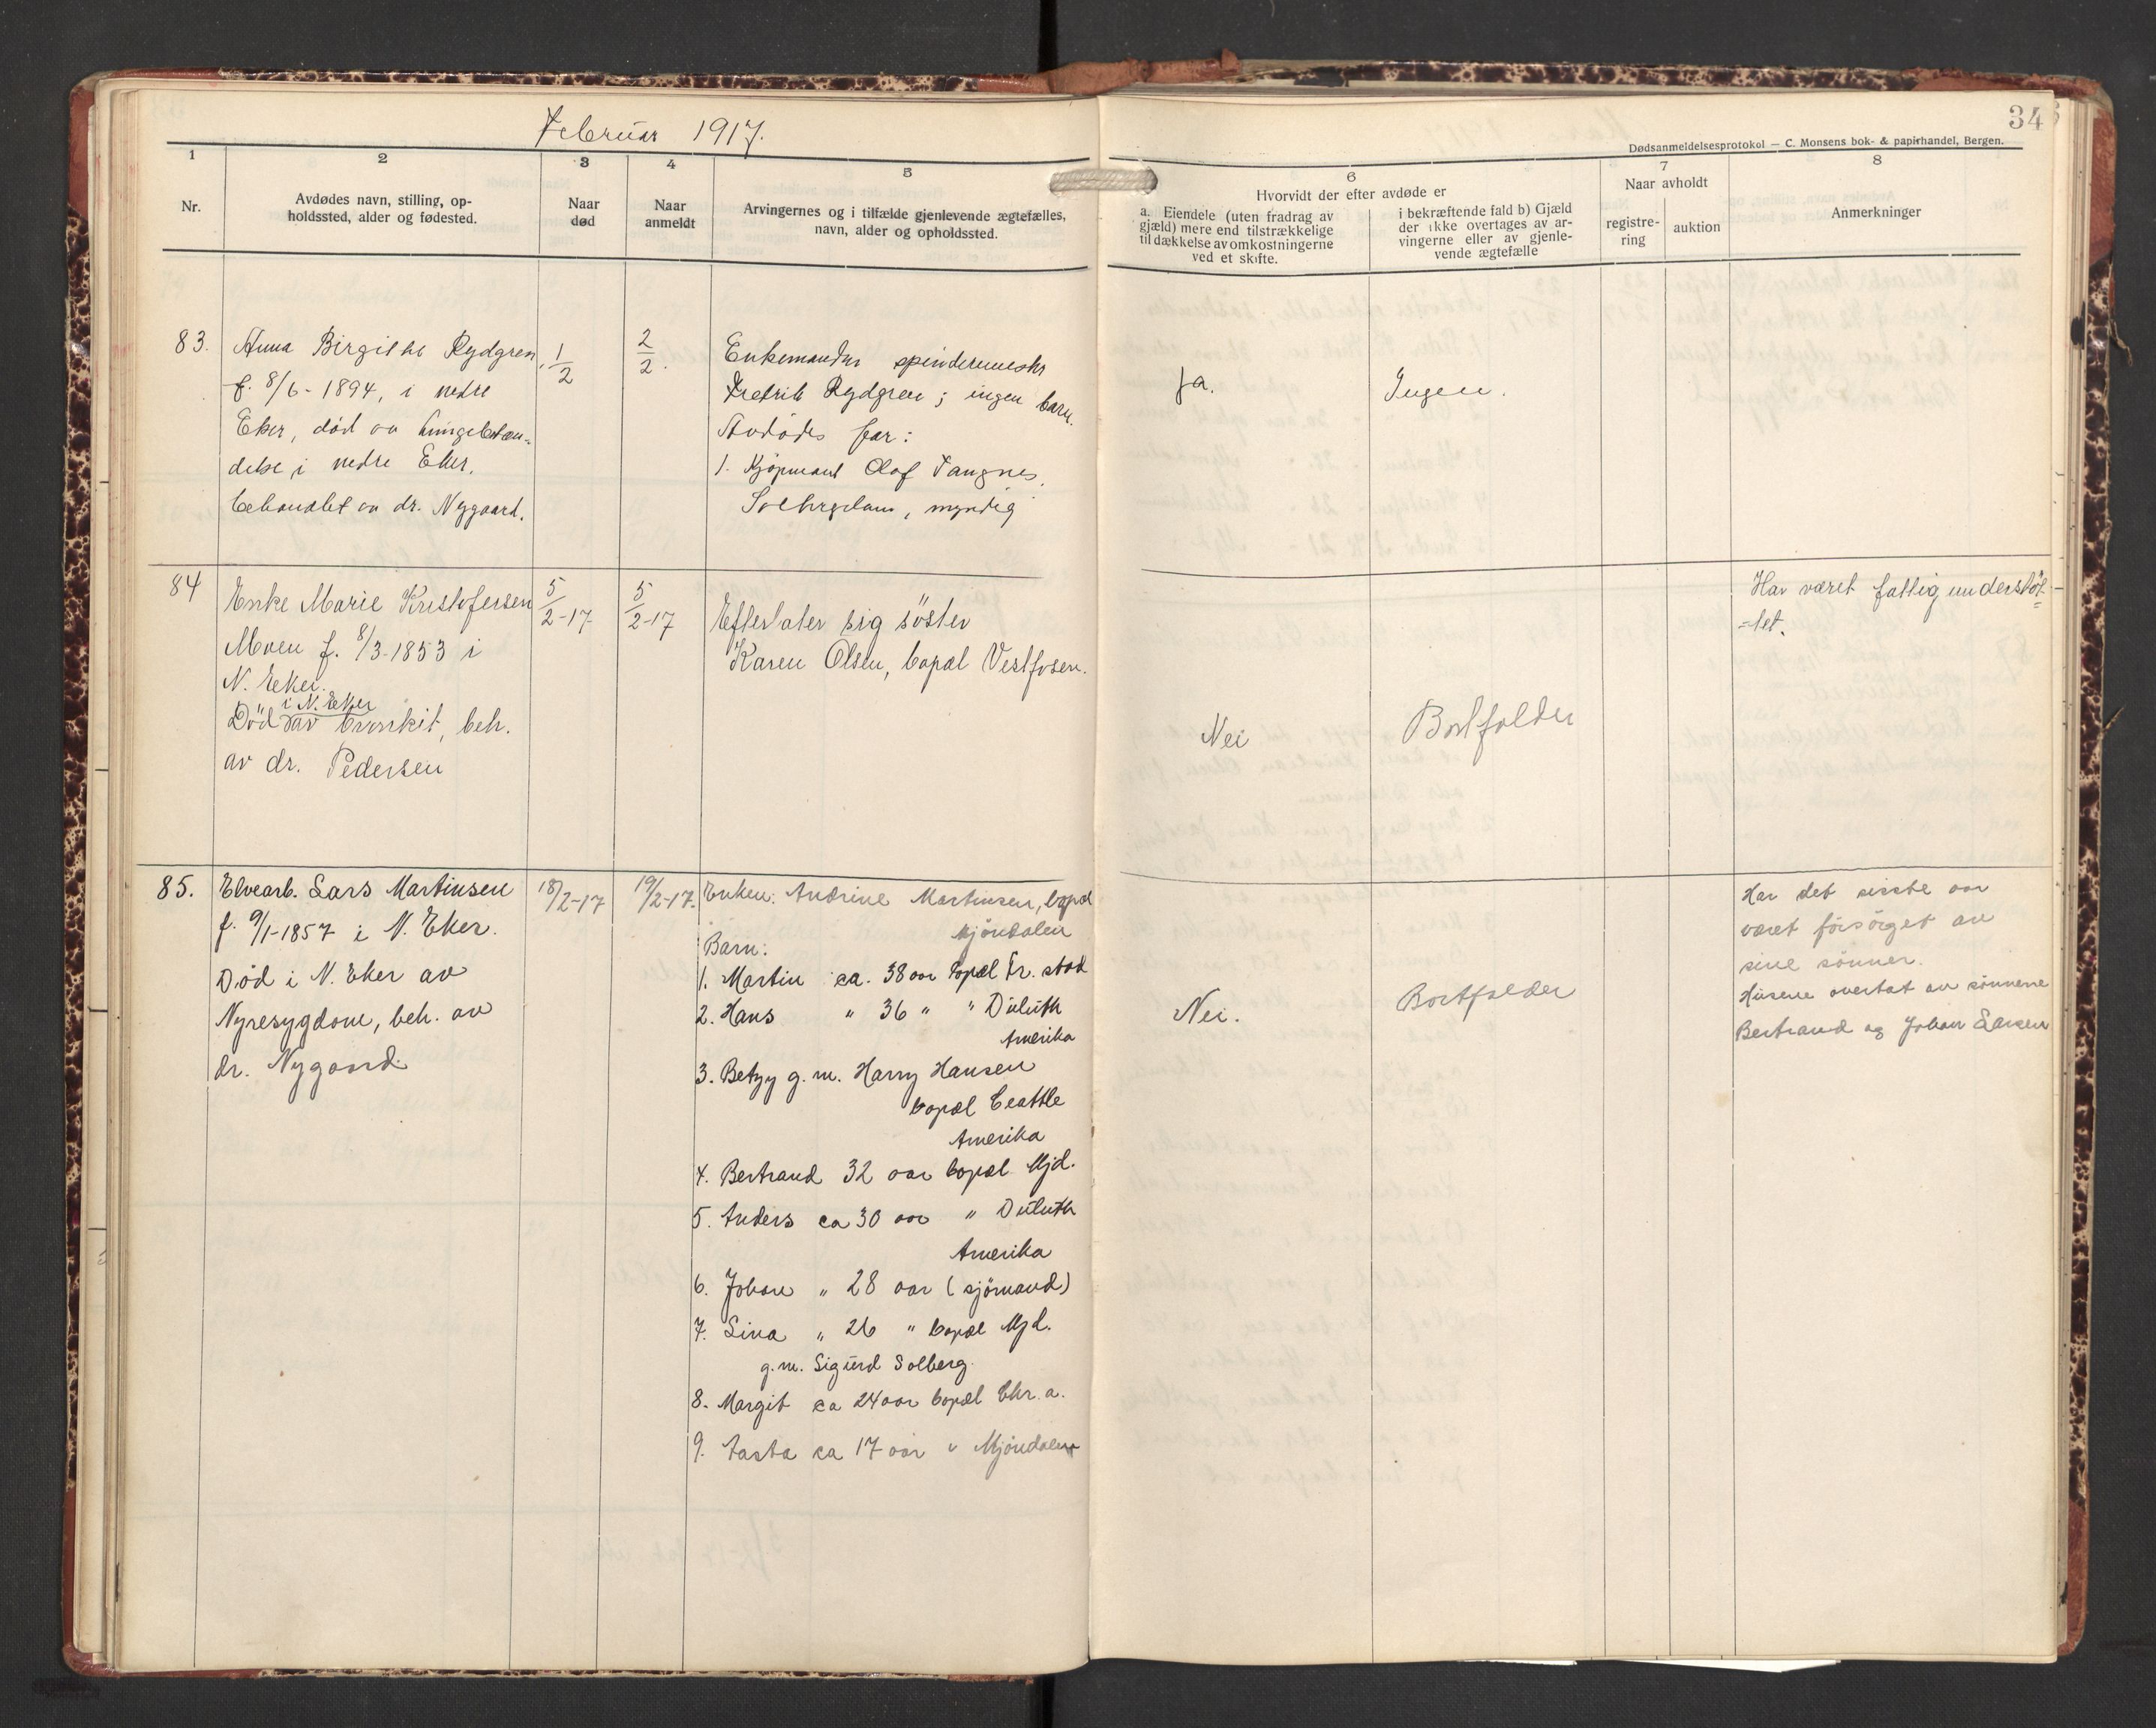 Februar 1917.
34
Dødsanmeldelsesprotokol — C. Monsens bok- & papirhandel, Bergen.
1
Nr.
2
Avdødes navn, stilling, op-
holdssted, alder og fødested.
3
Naar
død
4
Naar
anmeldt
5
Arvingernes og i tilfælde gjenlevende ægtefælles,
navn, alder og opholdssted.
6
Hvorvidt der efter avdøde er
a. Eiendele (uten fradrag av
gjæld) mere end tilstrækkelige
til dækkelse av omkostningerne
ved et skifte.
i bekræftende fald b) Gjæld
der ikke overtages av ar-
vingerne eller av gjenle-
vende ægtefælle
7
Naar avholdt
registre-
ring
auktion
8
Anmerkninger
83.
Anna Birgithe Rydgren,
f. 8/6-1894, i nedre
Eker, død av lungebetæn-
delse i nedre Eker.
behandlet av dr. Nygaard.
1/2
2/2.
Enkemanden spindemester
Fredrik Rydgren; ingen barn.
Avdødes far:
1. Kjøpmand Olaf Tangnes,
Solbergelven, myndig
Ja.
Ingen.
84
Enke Marie Kristofersen
Moen f. 8/3-1853 i
N. Eker.
i N. Eker
Död av bronkit, beh.
av dr. Pedersen
5/2-17
5/2-17
Efterlater sig söster
Karen Olsen, bopæl Vestfosen.
Nei
Bortfalder
Har været fattigunderstöt-
=tet.
85.
Elvearb. Lars Martinsen
f. 9/1-1857 i N. Eker.
Död i N. Eker av
Nyresygdom, beh. av
dr. Nygaard.
18/2-17
19/2-17.
Enken: Andrine Martinsen, bopæl
Mjöndalen
Barn:
1. Martin ca. 38 aar bopæl Fr. stad
2. Hans " 36 " " Duluth
Amerika
3. Betzy g. m. Harry Hansen
bopæl Ceattle
Amerika
4. Bertrand 32 aar bopæl Mjd.
5. Anders ca 30 aar " Duluth
Amerika
6. Johan " 28 aar (sjömand)
7. Lina " 26 " bopæl Mjd.
g. m. Sigurd Solberg.
8. Margit ca 24 aar bopæl Chr. a.
9. Aasta ca 17 aar " Mjöndalen
Nei.
Bortfalder
Har det sisste aar
været försörget av
sine sönner.
Husene overtat av sönnene
Bertrand og Johan Larsen